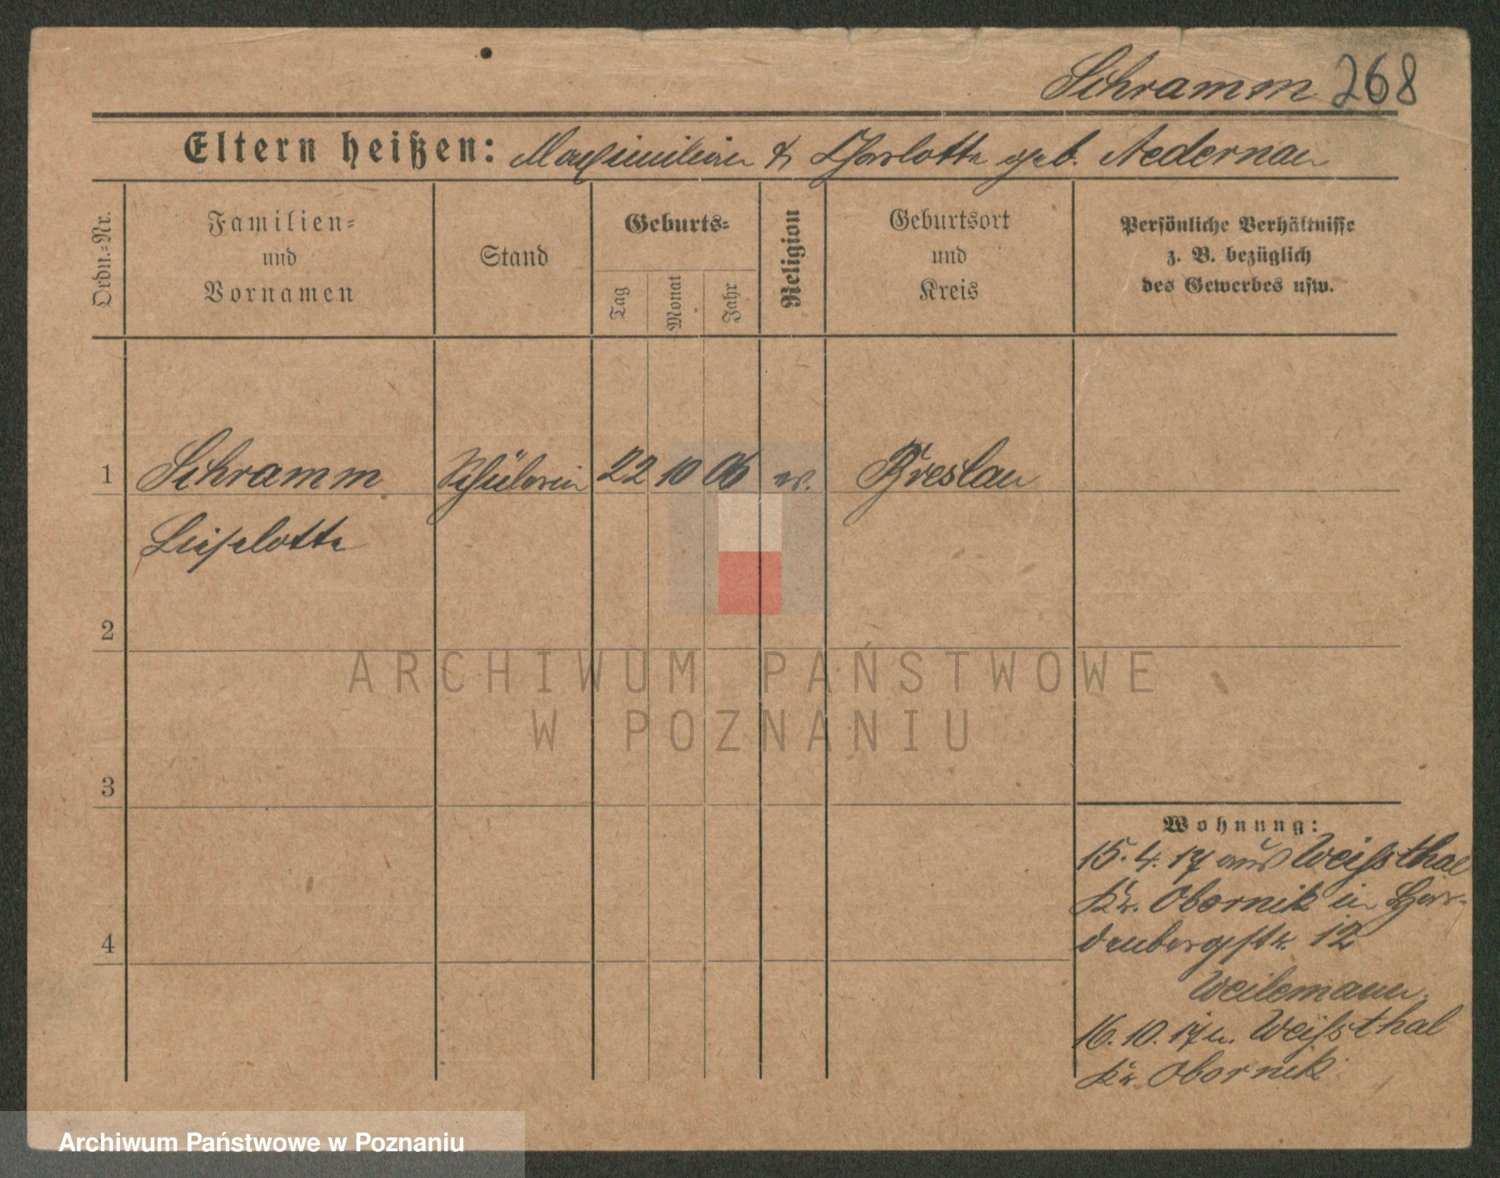 Schramm 268
Eltern heißen: Maximilian & Charlotte geb. Nedernau
Ordn.-Nr.
Familien-
und
Vornamen
Stand
Geburts-
Tag
Monat
Jahr
Religion
Geburtsort
und
Kreis
Persönliche Verhältnisse
z. B. bezüglich
des Gewerbes usw.
1 Schramm Schülerin 22 10 06 ev. Breslau
Lieselotte
2
3
4
Wohnung:
15.4.17 aus Weißthal
Kr. Obornik in Har-
denbergstr. 12
Weilemann
16.10.17 n. Weißsthal
Kr. Obornik
ARCHIWUM PAŃSTWOWE
W POZNANIU
Archiwum Państwowe w Poznaniu